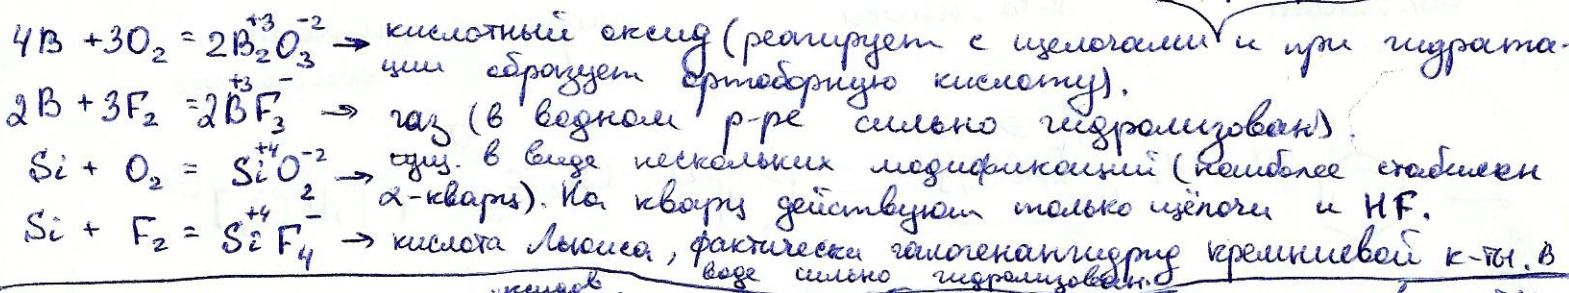 4B + 3O₂ = 2B₂⁺³O₃⁻² → кислотный оксид (реагирует с щелочами и при гидрата-
ции образует ортоборную кислоту).
2B + 3F₂ = 2B⁺³F₃⁻ → газ (в водном р-ре сильно гидролизован).
Si + O₂ = Si⁺⁴O₂⁻² → сущ. в виде нескольких модификаций (наиболее стабилен
α-кварц). На кварц действуют только щёлочи и HF.
Si + F₂ = Si⁺⁴F₄⁻ → кислота Льюиса, фактически галогенангидрид кремниевой к-ты. В
воде сильно гидролизован.